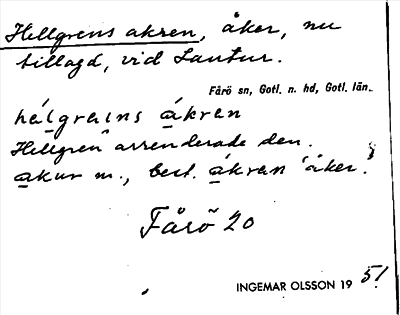 Hellgrens akren, åker, nu
tillagd, vid Lautur.
Fårö sn, Gotl. n. hd, Gotl. län.
hálgrains ákran
Hellgren arrenderade den.
akur m., best. ákran 'åker'.
Fårö 20
INGEMAR OLSSON 19 51